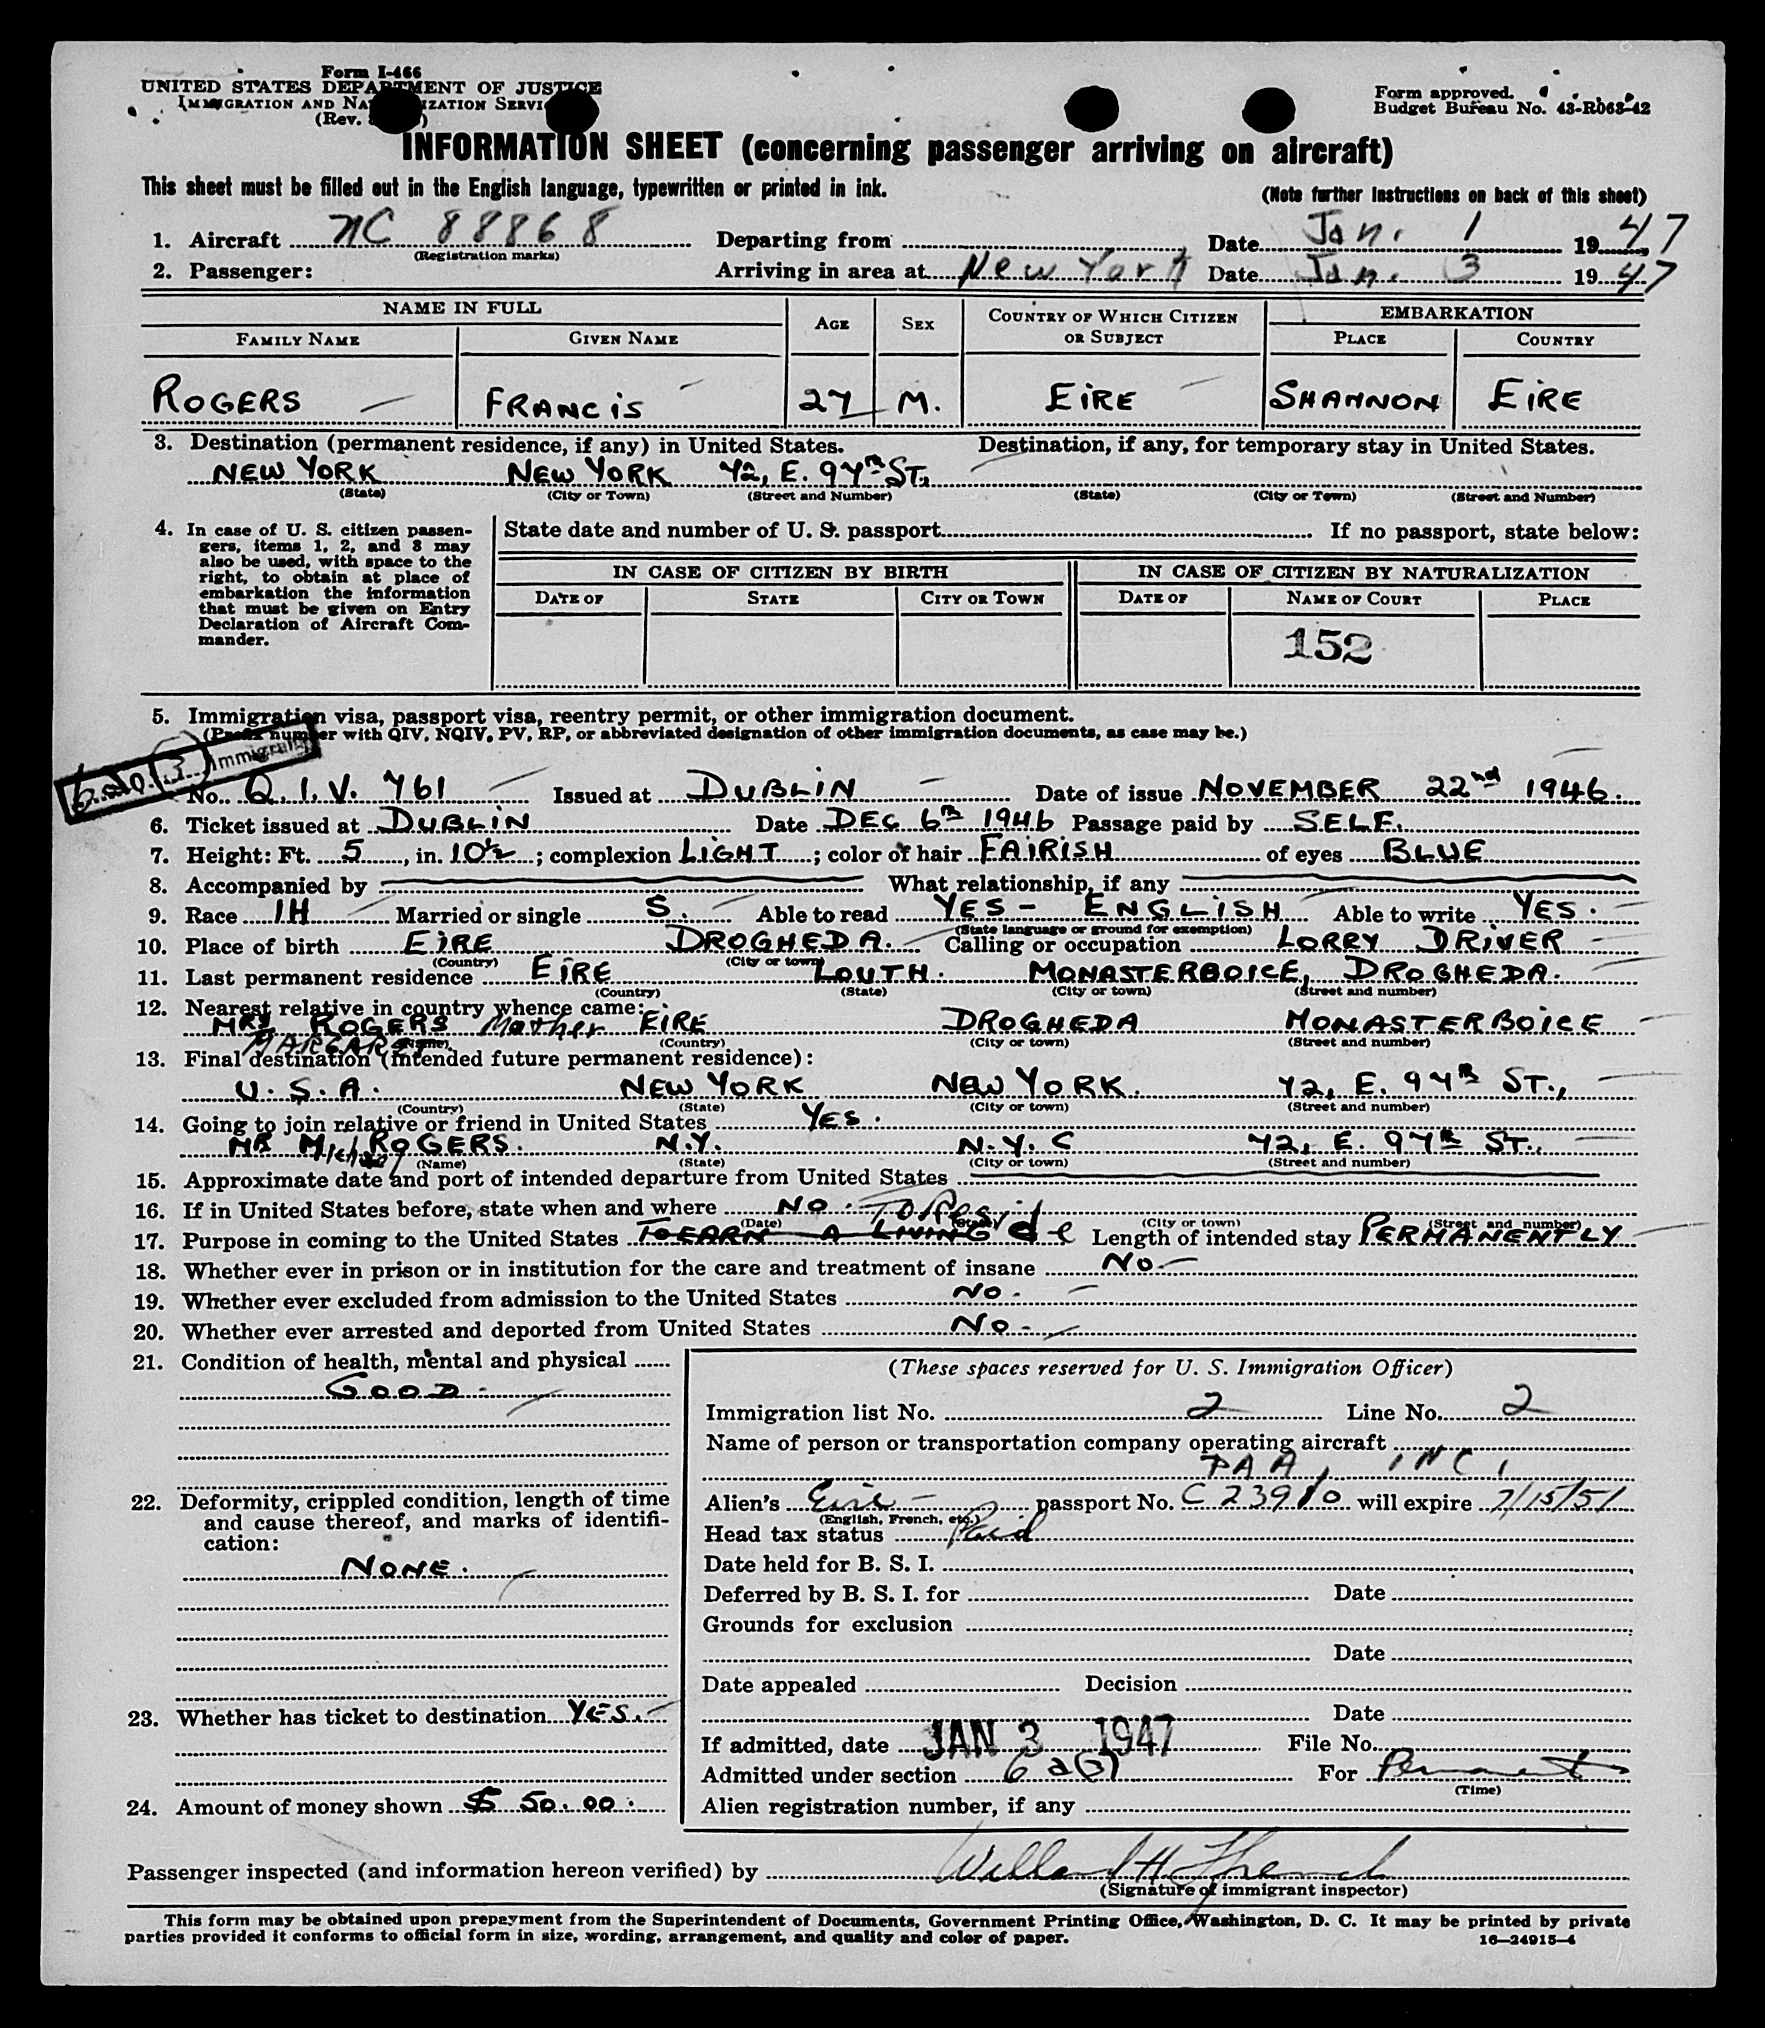 Form I-466
UNITED STATES DEPARTMENT OF JUSTICE
IMMIGRATION AND NATURALIZATION SERVICE
(Rev. )
Form approved.
Budget Bureau No. 43-R063-42
INFORMATION SHEET (concerning passenger arriving on aircraft)
This sheet must be filled out in the English language, typewritten or printed in ink.
(Note further instructions on back of this sheet)
1. Aircraft NC 88868 Departing from Date Jan. 1 1947
(Registration marks)
2. Passenger: Arriving in area at New York Date Jan. 3 1947
NAME IN FULL AGE SEX COUNTRY OF WHICH CITIZEN OR SUBJECT EMBARKATION
FAMILY NAME GIVEN NAME PLACE COUNTRY
ROGERS FRANCIS 27 M. EIRE SHANNON EIRE
3. Destination (permanent residence, if any) in United States. Destination, if any, for temporary stay in United States.
NEW YORK NEW YORK 72, E. 97th ST.,
(State) (City or Town) (Street and Number) (State) (City or Town) (Street and Number)
4. In case of U. S. citizen passen-
gers, items 1, 2, and 8 may
also be used, with space to the
right, to obtain at place of
embarkation the information
that must be given on Entry
Declaration of Aircraft Com-
mander.
State date and number of U. S. passport If no passport, state below:
IN CASE OF CITIZEN BY BIRTH IN CASE OF CITIZEN BY NATURALIZATION
DATE OF STATE CITY OR TOWN DATE OF NAME OF COURT PLACE
152
5. Immigration visa, passport visa, reentry permit, or other immigration document.
(Prefix number with QIV, NQIV, PV, RP, or abbreviated designation of other immigration documents, as case may be.)
No. Q.I.V. 761 Issued at DUBLIN Date of issue NOVEMBER 22nd 1946.
6. Ticket issued at DUBLIN Date DEC 6th 1946 Passage paid by SELF.
7. Height: Ft. 5, in. 10½; complexion LIGHT; color of hair FAIRISH of eyes BLUE
8. Accompanied by What relationship, if any
9. Race IH Married or single S. Able to read YES - ENGLISH Able to write YES.
(State language or ground for exemption)
10. Place of birth EIRE DROGHEDA. Calling or occupation LORRY DRIVER
(Country) (City or town)
11. Last permanent residence EIRE LOUTH. MONASTERBOICE, DROGHEDA.
(Country) (State) (City or town) (Street and number)
12. Nearest relative in country whence came:
MRS ROGERS Mother EIRE DROGHEDA MONASTERBOICE
MARGARET
(Name) (Country) (City or town) (Street and number)
13. Final destination (intended future permanent residence):
U.S.A. NEW YORK NEW YORK. 72, E. 97th ST.,
(Country) (State) (City or town) (Street and number)
14. Going to join relative or friend in United States YES.
MR Michael ROGERS. N.Y. N.Y.C 72, E. 97th ST.,
(Name) (State) (City or town) (Street and number)
15. Approximate date and port of intended departure from United States
16. If in United States before, state when and where NO.
(Date) (State) (City or town) (Street and number)
17. Purpose in coming to the United States TO EARN A LIVING To Reside Length of intended stay PERMANENTLY
18. Whether ever in prison or in institution for the care and treatment of insane NO.
19. Whether ever excluded from admission to the United States NO.
20. Whether ever arrested and deported from United States NO.
21. Condition of health, mental and physical
GOOD.
22. Deformity, crippled condition, length of time
and cause thereof, and marks of identifi-
cation:
NONE.
23. Whether has ticket to destination YES.
24. Amount of money shown $ 50.00.
(These spaces reserved for U. S. Immigration Officer)
Immigration list No. 2 Line No. 2
Name of person or transportation company operating aircraft
PAA, INC,
Alien's Eire passport No. C 23910 will expire 7/15/51
(English, French, etc.)
Head tax status Paid
Date held for B. S. I.
Deferred by B. S. I. for Date
Grounds for exclusion
Date
Date appealed Decision
Date
If admitted, date JAN 3 1947 File No.
Admitted under section 6a(3) For Permanent
(Time)
Alien registration number, if any
Passenger inspected (and information hereon verified) by
(Signature of immigrant inspector)
This form may be obtained upon prepayment from the Superintendent of Documents, Government Printing Office, Washington, D. C. It may be printed by private
parties provided it conforms to official form in size, wording, arrangement, and quality and color of paper.
16—24915-4